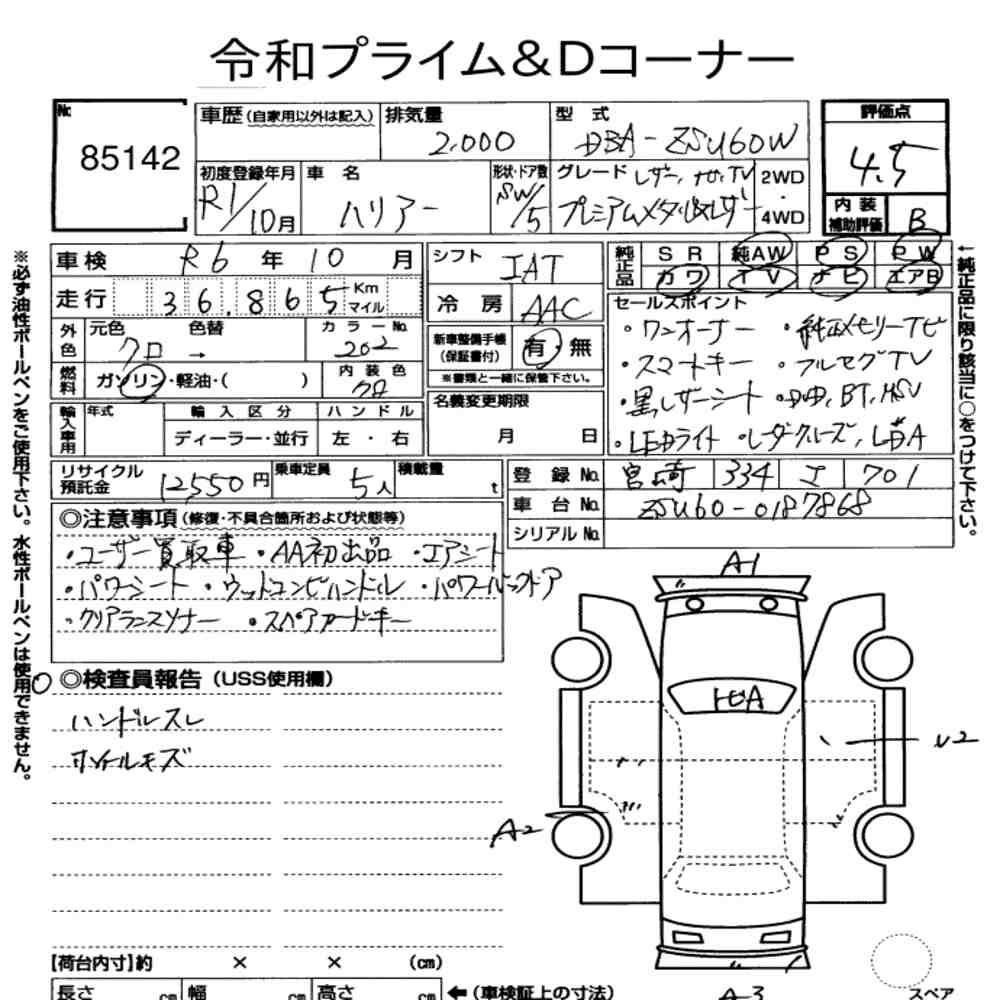 令和プライム&Dコーナー
No.
85142
車歴(自家用以外は記入)
排気量
2.000
型式
DBA-ZSU60W
評価点
4.5
初度登録年月
R1/10月
車名
ハリアー
形状・ドア数
SW/5
グレード
レザー, ナビ, TV
プレミアムメタル&レザー
2WD
・
4WD
内装
補助評価
B
車検 R6年10月
走行 36.865 Km
マイル
シフト
IAT
冷房
AAC
純正品
SR 純AW PS PW
カワ TV ナビ エアB
外色
元色 色替
クロ →
カラーNo.
202
燃料
ガソリン・軽油・( )
内装色
クロ
新車整備手帳
(保証書付)
有 無
※書類と一緒に保管下さい。
輸入車用
年式
輸入区分
ディーラー・並行
ハンドル
左・右
名義変更期限
月 日
セールスポイント
・ワンオーナー ・純正メモリーナビ
・スマートキー ・フルセグTV
・黒レザーシート ・DVD, BT, MSV
・LEDライト ・レーダークルーズ, LDA
リサイクル
預託金
12550円
乗車定員
5人
積載量
t
登録No. 宮崎 334 701
車台No. ZSU60-0187868
シリアルNo.
◎注意事項(修復・不具合箇所および状態等)
・ユーザー買取車 ・AA初出品 ・エアシート
・パワーシート ・ウッドコンビハンドル ・パワーバックドア
・クリアランスソナー ・スペアカードキー
◎検査員報告(USS使用欄)
ハンドルスレ
ホイールキズ
A1
U2
A2
A-3
【荷台内寸】約 × × (cm)
長さ cm 幅 cm 高さ cm
←(車検証上の寸法)
スペア
※必ず油性ボールペンをご使用下さい。水性ボールペンは使用できません。
←純正品に限り該当に○をつけて下さい。